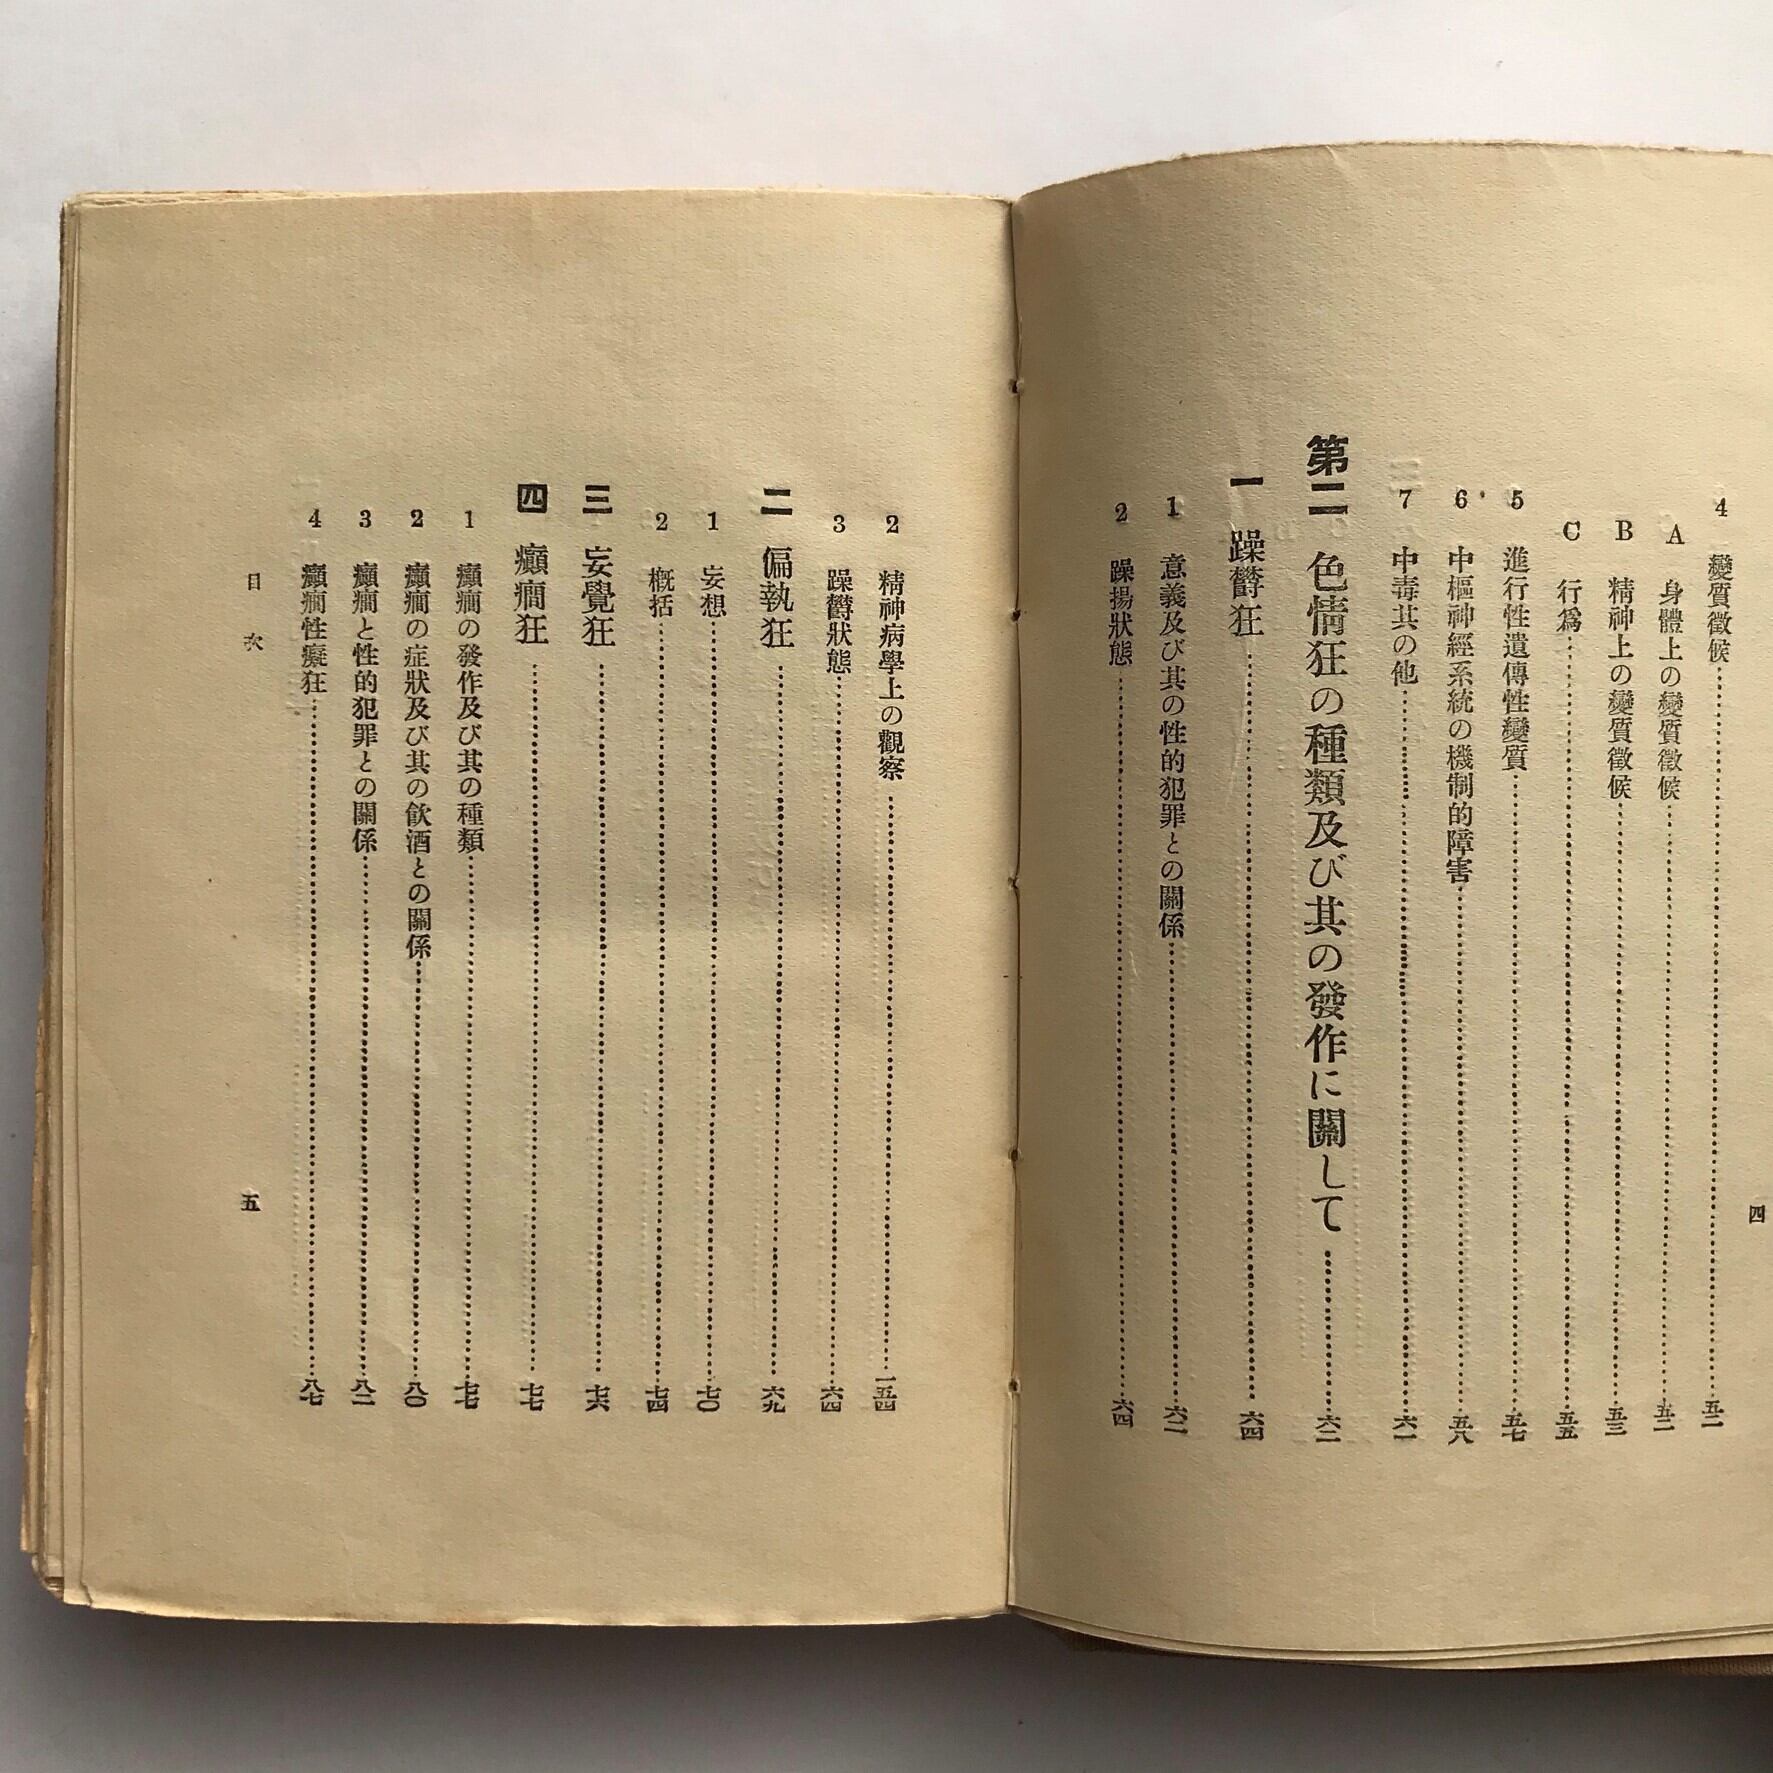 4 變質徵候……五二
A 身體上の變質徵候……五二
B 精神上の變質徵候……五三
C 行爲……五五
5 進行性遺傳性變質……五七
6 中樞神經系統の機制的障害……五八
7 中毒其の他……六一
第二 色情狂の種類及び其の發作に關して……六二
一 躁鬱狂……六四
1 意義及び其の性的犯罪との關係……六二
2 躁揚狀態……六四
四
2 精神病學上の觀察……一五四
3 躁鬱狀態……六四
二 偏執狂……六九
1 妄想……七〇
2 概括……七四
三 妄覺狂……七六
四 癲癇狂……七七
1 癲癇の發作及び其の種類……七七
2 癲癇の症狀及び其の飮酒との關係……八〇
3 癲癇と性的犯罪との關係……八二
4 癲癇性癡狂……八七
目次
五